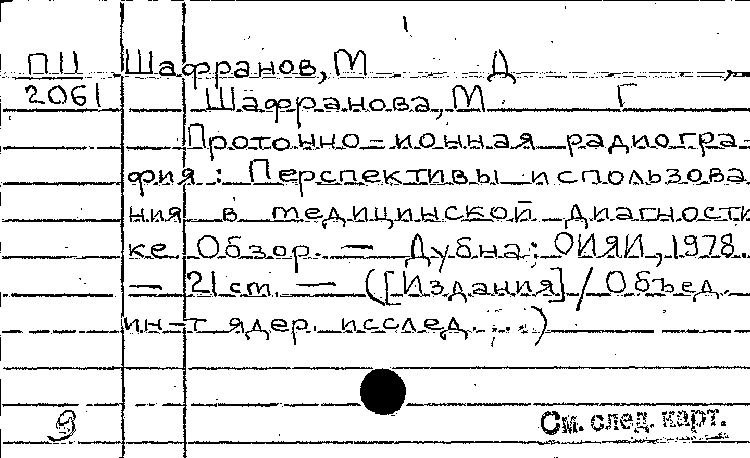 1
П11 Шафранов, М Д ,
2061 Шафранова, М Г
Протонно-ионная радиогра-
фия: Перспективы использова
ния в медицинской диагности
ке Обзор. — Дубна; ОИЯИ, 1978.
— 21 ст. — ([Издания] / Объед.
ин-т ядер. исслед. ...)
9 См. след. карт.